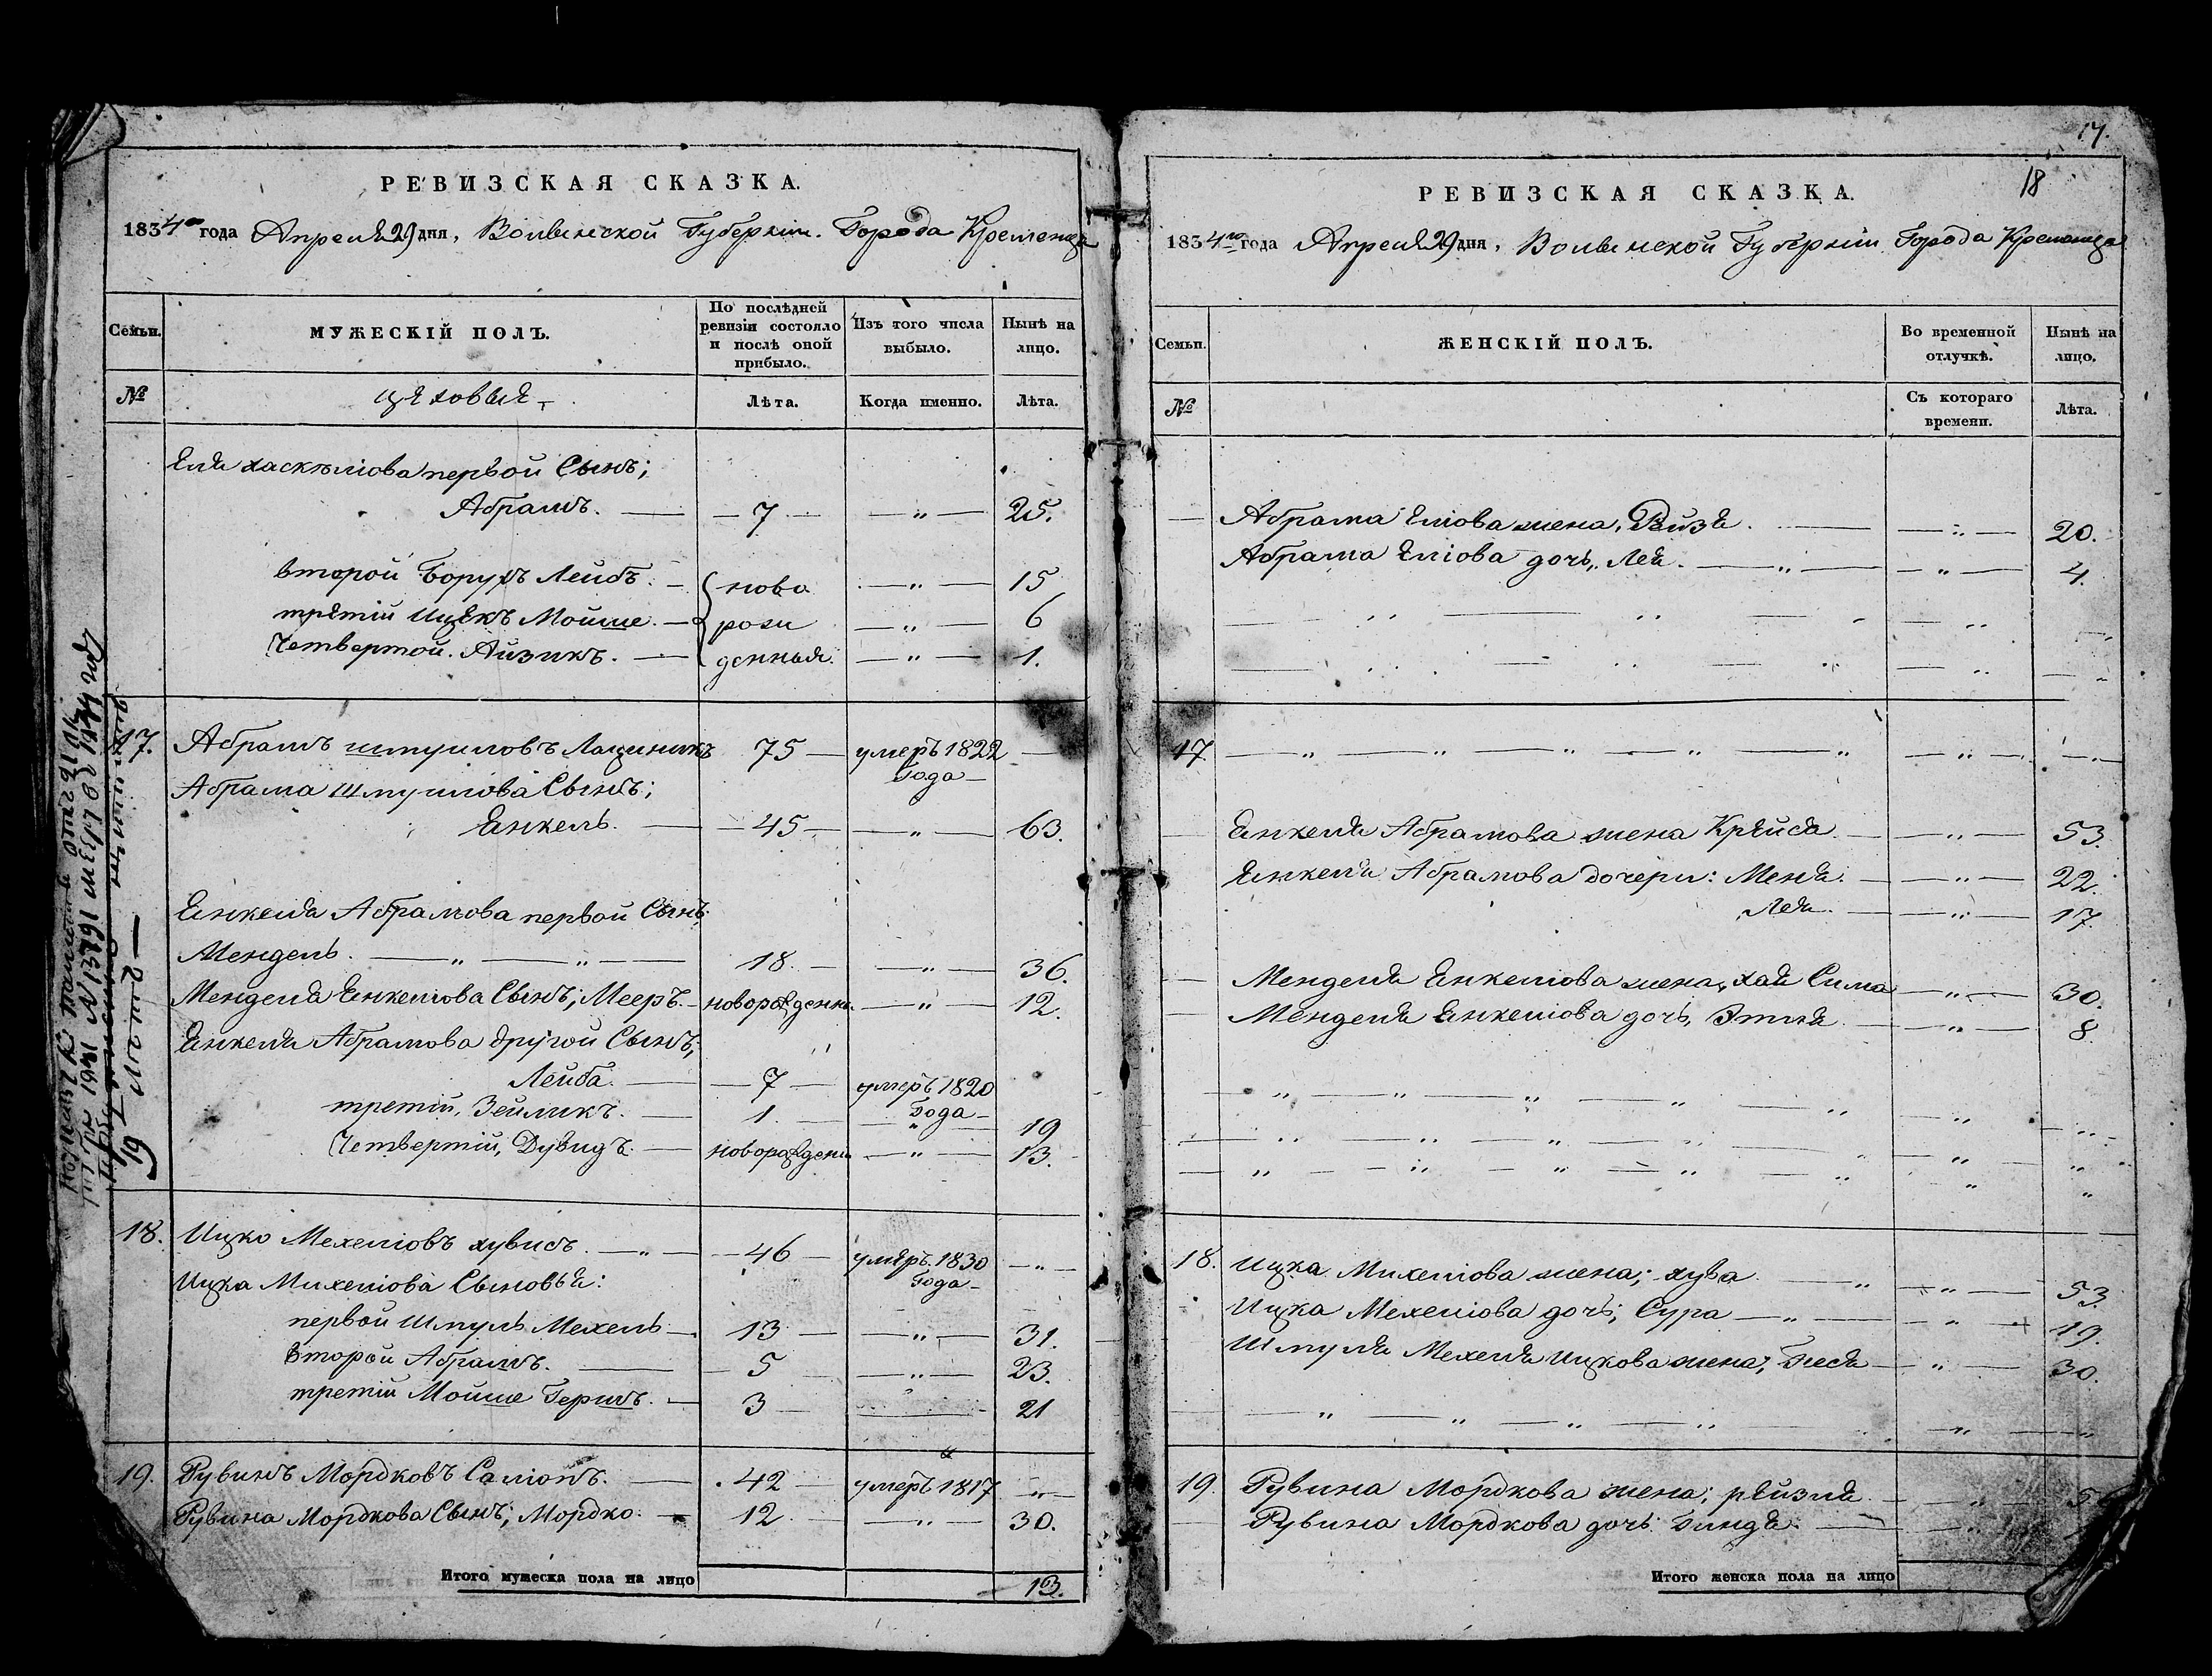 17.
18
РЕВИЗСКАЯ СКАЗКА.
1834го года Апреля 29 дня, Волынской Губерніи. Города Кременца
Семьи. МУЖЕСКІЙ ПОЛЪ. По послѣдней ревизіи состояло и послѣ оной прибыло. Изъ того числа выбыло. Нынѣ на лицо.
№ цеховые Лѣта. Когда именно. Лѣта.
Еля Хаскеліова первой Сынъ;
Абрамъ. — 7 — „ — 25.
второй Борухъ Лейбъ. — ново — „ — 15
третій Ицекъ Мойше. — рож — „ — 6
Четвертой. Айзикъ. — денныя. — „ — 1.
17. Абрамъ Шмуиловъ 75 — умеръ 1822 Года —
Абрама Шмуилова Сынъ;
Енкель. — 45 — „ — 63.
Енкеля Абрамова первой Сынъ;
Мендель. — „ — „ — 18. — „ — 36.
Менделя Енкеліова Сынъ; Мееръ. — новорожденн. — „ — 12.
Енкеля Абрамова другой Сынъ;
Лейба. — 7 — умеръ 1820 Года —
третій, Зейликъ. — 1. — „ — 19
Четвертій, Дувидъ. — новорожденн — „ — 13.
18. Ицко Мехеліовъ — „ — 46 — умеръ 1830 Года — „ —
Ицка Михеліова Сыновья:
первой Шмуль Мехель — 13 — „ — 31.
Второй Абрамъ. — 5 — „ — 23.
третій Мойше Гершъ. — 3 — 21
19. Рувинъ Мордковъ — 42 — умеръ 1817 — „ —
Рувина Мордкова Сынъ; Мордко. — 12 — „ — 30.
Итого мужеска пола на лицо 13.
РЕВИЗСКАЯ СКАЗКА.
1834го года Апреля 29 дня, Волынской Губерніи Города Кременца
Семьи. ЖЕНСКІЙ ПОЛЪ. Во временной отлучкѣ. Нынѣ на лицо.
№ Съ котораго времени. Лѣта.
— Абрама Еліова жена, Рейзя. — „ — 20.
Абрама Еліова дочь, Лея. — „ — „ — 4.
17. — „ — „ — „ — „ — „ — „ —
Енкеля Абрамова жена Крейся — „ — 53.
Енкеля Абрамова дочери: Меня. — „ — 22.
Лея. — „ — 17.
— Менделя Енкеліова жена, Хая Сима — „ — 30.
— Менделя Енкеліова дочь, Этля — „ — 8.
18. Ицка Михеліова жена; Хува — „ — „ — 53.
Ицка Мехеліова дочь; Сура — „ — „ — 19.
Шмуля Мехеля Ицкова жена; — „ — 30.
19. Рувина Мордкова жена; Рейзля — „ —
Рувина Мордкова дочь: Гинда. — „ —
Итого женска пола на лицо